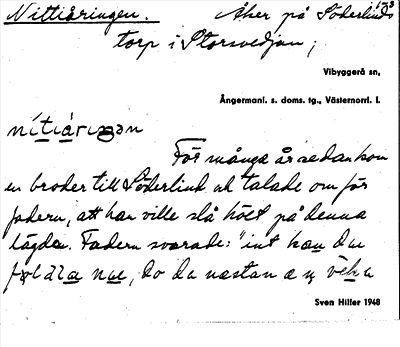 Nittiåringen. Åker på Söderlinds
torp i Storsvedjan;
Vibyggerå sn,
Ångermanl. s. doms. tg., Västernorrl. l.
För många år sedan kom
en broder till Söderlind och talade om för
fadern, att han ville slå höet på denna
lägda. Fadern svarade: "int kan du
nästan
Sven Hiller 1948